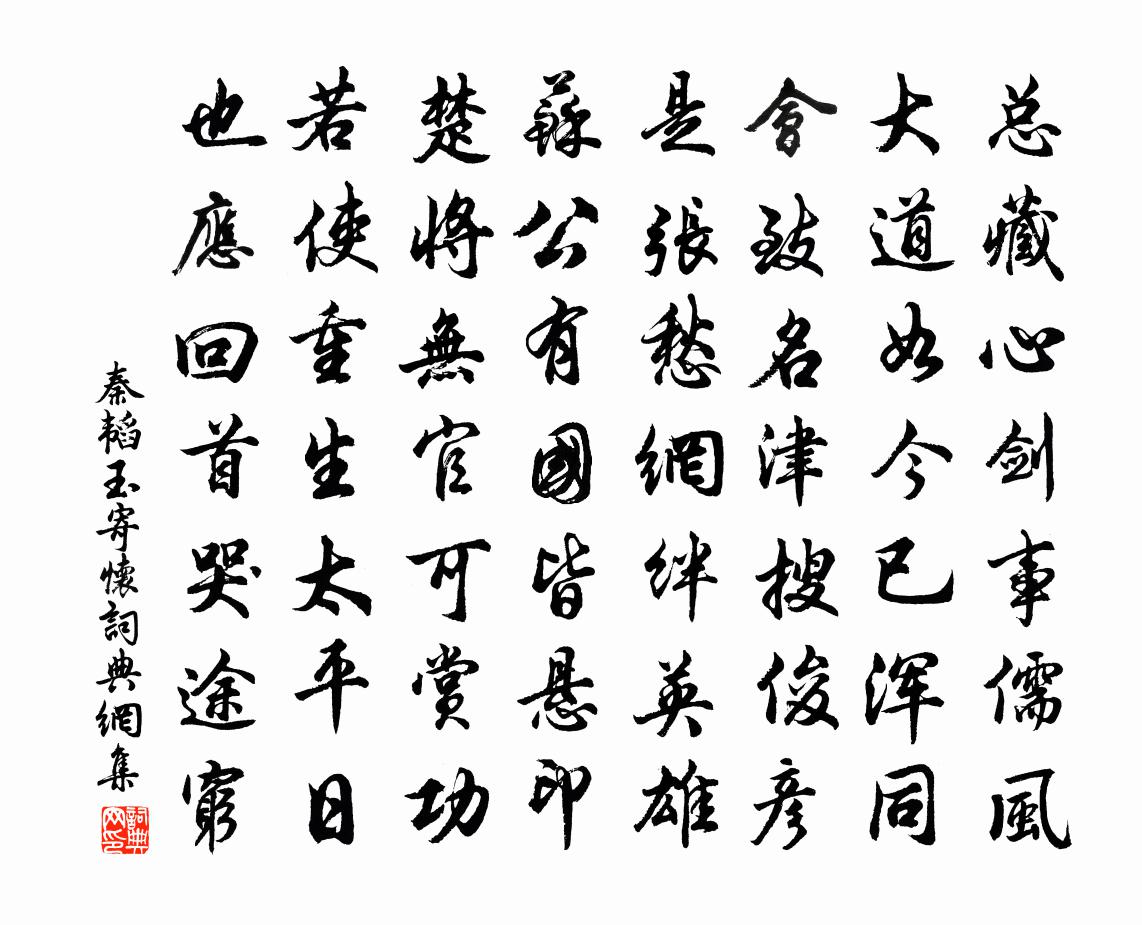 总藏心剑事儒風
大道如今已浑同
會致名津搜俊彦
是張愁網絆英雄
蘇公有國皆悬印
楚將無官可赏功
若使重生太平日
也應回首哭途窮
秦韬玉寄懷詞典網集
詞典网印